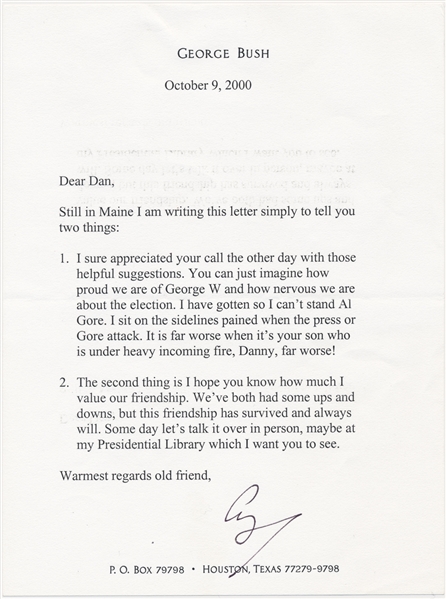 GEORGE BUSH
October 9, 2000
Dear Dan,
Still in Maine I am writing this letter simply to tell you
two things:
1. I sure appreciated your call the other day with those
helpful suggestions. You can just imagine how
proud we are of George W and how nervous we are
about the election. I have gotten so I can't stand Al
Gore. I sit on the sidelines pained when the press or
Gore attack. It is far worse when it's your son who
is under heavy incoming fire, Danny, far worse!
2. The second thing is I hope you know how much I
value our friendship. We've both had some ups and
downs, but this friendship has survived and always
will. Some day let's talk it over in person, maybe at
my Presidential Library which I want you to see.
Warmest regards old friend,
P. O. BOX 79798 • HOUSTON, TEXAS 77279-9798